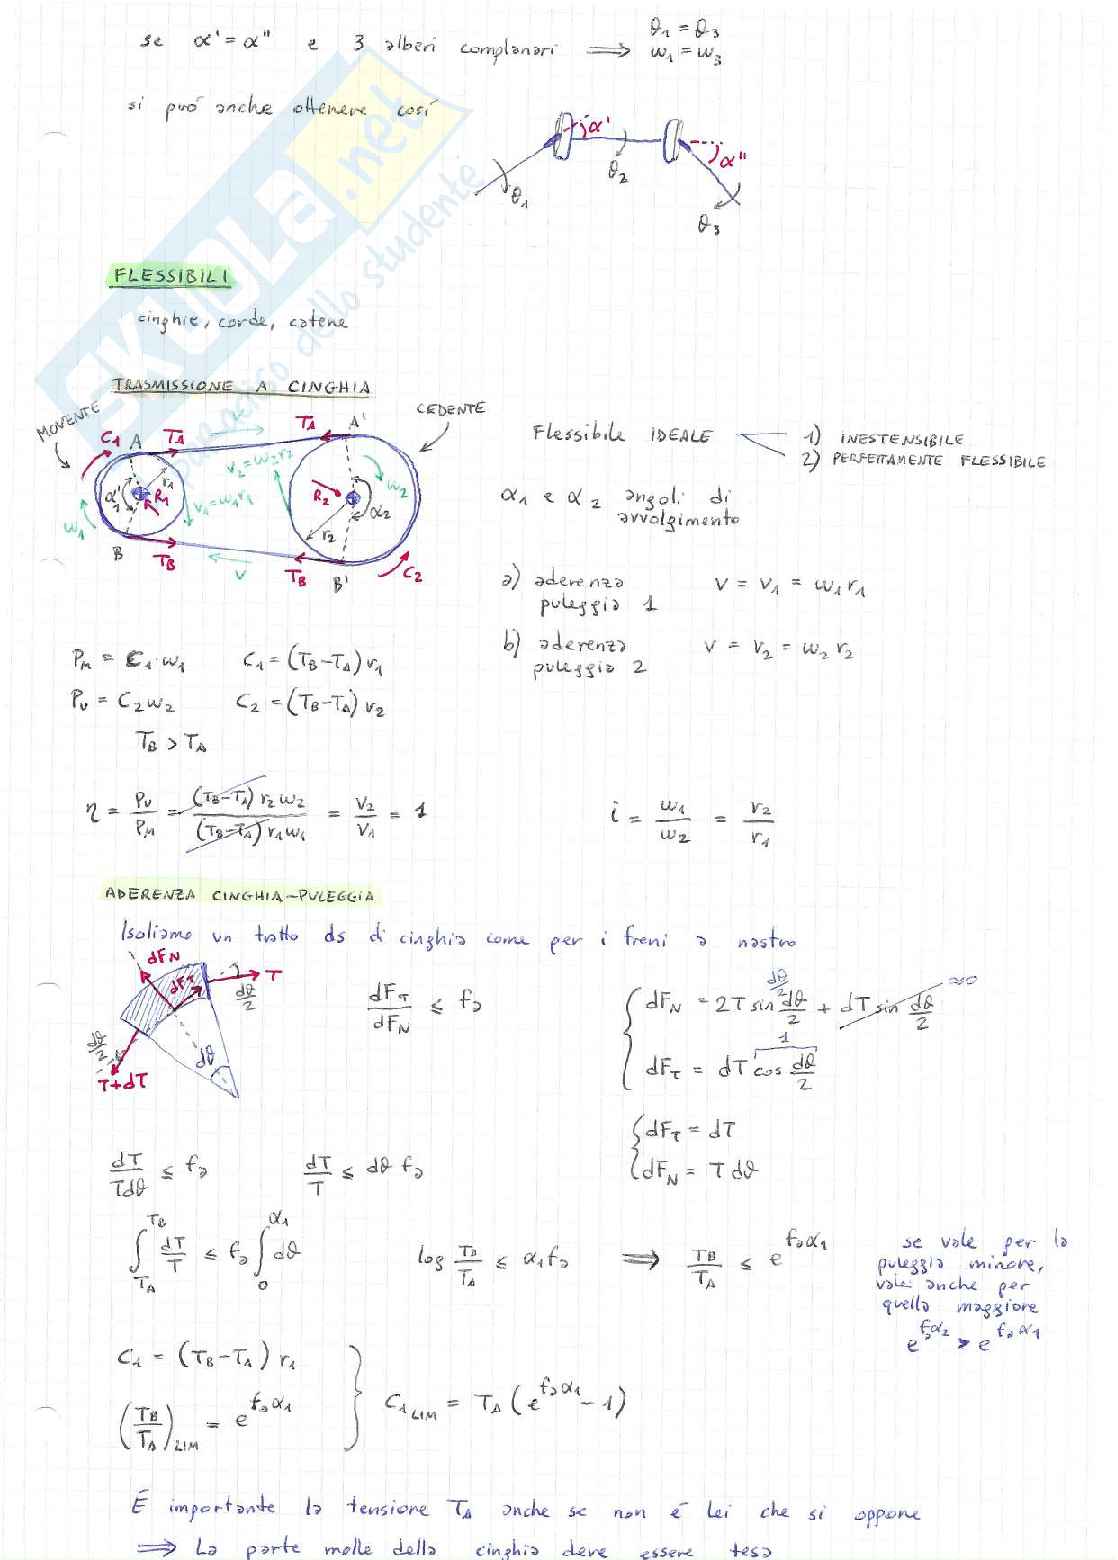 se α' = α'' e 3 alberi complanari ⟹ θ₁ = θ₃
ω₁ = ω₃
si può anche ottenere così
α'
α''
θ₁
θ₂
θ₃
SKUOLA.net
dello studente
FLESSIBILI
cinghie, corde, catene
TRASMISSIONE A CINGHIA
MOVENTE
CEDENTE
C₁ A T_A T_A A'
v₂ = ω₂r₂
r₁ R₁ v₁ = ω₁r₁ R₂ ω₂ α₂
ω₁ r₂
B T_B v T_B B' C₂
Flessibile IDEALE 1) INESTENSIBILE
2) PERFETTAMENTE FLESSIBILE
α₁ e α₂ angoli di
avvolgimento
a) aderenza
puleggia 1 v = v₁ = ω₁r₁
b) aderenza
puleggia 2 v = v₂ = ω₂ r₂
P_M = C₁ · ω₁ C₁ = (T_B - T_A) r₁
P_U = C₂ω₂ C₂ = (T_B - T_A) r₂
T_B > T_A
η = P_U / P_M = (T_B - T_A) r₂ω₂ / (T_B - T_A) r₁ω₁ = v₂ / v₁ = 1
i = ω₁ / ω₂ = r₂ / r₁
ADERENZA CINGHIA-PULEGGIA
Isoliamo un tratto ds di cinghia come per i freni a nastro
dF_N dF_T T dθ/2
dθ/2 dθ
T+dT
dF_T / dF_N ≤ fa
dF_N = 2T sin dθ/2 + dT sin dθ/2 ≈0
dθ/2
1
dF_T = dT cos dθ/2
dF_T = dT
dF_N = T dθ
dT / Tdθ ≤ fa dT / T ≤ dθ fa
∫_{T_A}^{T_B} dT / T ≤ fa ∫_0^{α₁} dθ log T_B / T_A ≤ α₁fa ⟹ T_B / T_A ≤ e^{faα₁}
se vale per la
puleggia minore,
vale anche per
quella maggiore
e^{faα₂} > e^{faα₁}
C₁ = (T_B - T_A) r₁
(T_B / T_A)_LIM = e^{faα₁}
C₁LIM = T_A (e^{faα₁} - 1)
É importante la tensione T_A anche se non é lei che si oppone
⟹ La parte molle della cinghia deve essere tesa